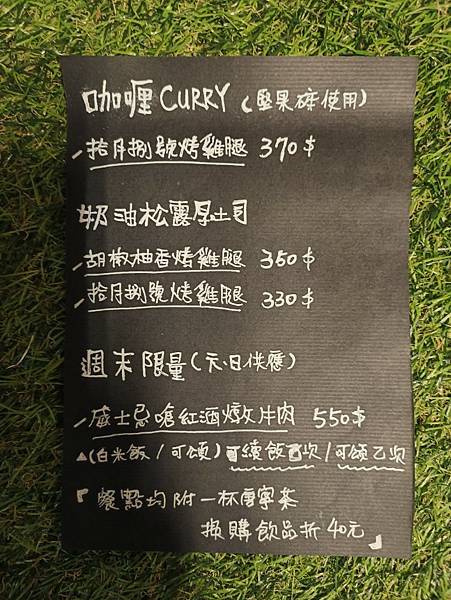 咖喱 CURRY (堅果碎使用)
拾月捌號烤雞腿 370$
奶油松露厚吐司
胡椒柚香烤雞腿 350$
拾月捌號烤雞腿 330$
週末限量(六、日供應)
威士忌嗆紅酒燉牛肉 550$
▲(白米飯/可頌)可續飯 次/可頌乙次
『餐點均附一杯唐寧茶
換購飲品折40元』